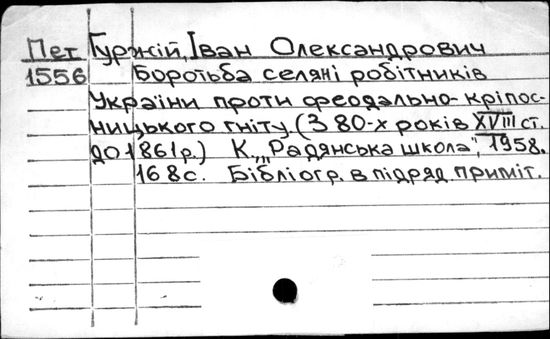 Пет Гуржій, Іван Олександрович
1556 Боротьба селяні робітників
України проти феодально-кріпос-
ницького гніту. (З 80-х років XVIII ст.
до 1861р.) К., „Радянська школа", 1958.
168с. Бібліогр. в підряд. приміт.